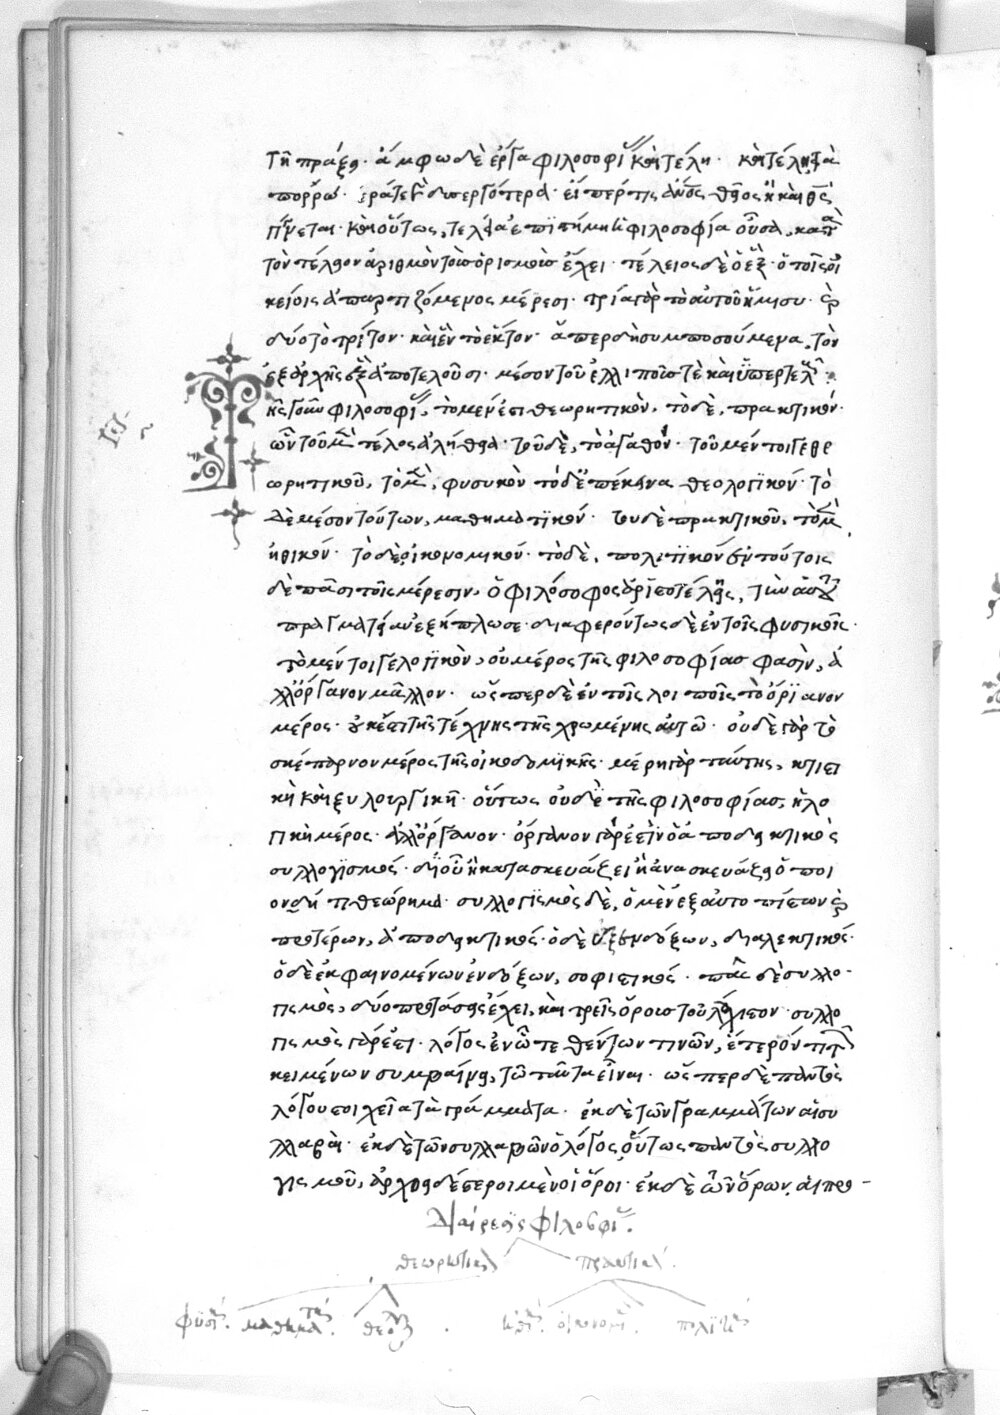 τῆ πράξει· ἄμφω δὲ ἔργα φιλοσοφίας καὶ τέλη· καὶ τέλη τὰ
πόρρω·
γίνεται· καὶ οὕτως, τελεία ἐπιστήμη ἡ φιλοσοφία οὖσα, κατὰ
τὸν τέλειον ἀριθμὸν τοὺς ὁρισμοὺς ἔχει· τέλειος δὲ ὁ ἓξ· ὁ τοῖς οἰ
κείοις ἀπαρτιζόμενος μέρεσι· τρία γὰρ τὸ αὐτοῦ ἥμισυ·
δύο τὸ τρίτον· καὶ ἓν τὸ ἕκτον· ἅπερ δὴ συμποσούμενα, τὸν
ἐξ ἀρχῆς ἓξ ἀποτελοῦσι· μέσον τοῦ ἐλλιποῦς τὲ καὶ ὑπερτελοῦς·
Τῆς γοῦν φιλοσοφίας, τὸ μέν ἐστι θεωρητικὸν, τὸ δὲ, πρακτικόν·
ὧν τοῦ μὲν τέλος ἀλήθεια· τοῦ δὲ, τὸ ἀγαθόν· τοῦ μέντοιγε θε
ωρητικοῦ, τὸ μὲν, φυσικὸν τὸ δ' ἐπέκεινα θεολογικόν· τὸ
δὲ μέσον τούτων, μαθηματικόν· τοῦ δὲ πρακτικοῦ, τὸ μὲν,
ἠθικόν· τὸ δὲ, οἰκονομικόν· τὸ δὲ, πολιτικόν ἐν τούτοις
δὲ πᾶσι τοῖς μέρεσιν, ὁ φιλόσοφος ἀριστοτέλης, τὴν αὐτοῦ
πραγματείαν ἐξήπλωσε· διαφερόντως δὲ ἐν τοῖς φυσικοῖς·
τὸ μέντοι γε λογικὸν, οὐ μέρος τῆς φιλοσοφίας φασὶν, ἀ
λλ' ὄργανον μᾶλλον· ὥσπερ δὲ ἐν τοῖς λοιποῖς τὸ ὄργανον
μέρος· οὐκ ἔστι τῆς τέχνης τῆς χρωμένης αὐτῶ· οὐδὲ γὰρ τὸ
σκέπαρνον μέρος τῆς οἰκοδομικῆς· μέρη γὰρ ταύτης, κτιστι
κὴ καὶ ξυλουργικὴ· οὕτως οὐδὲ τῆς φιλοσοφίας, ἡ λο
γικὴ μέρος· ἀλλ' ὄργανον· ὄργανον γάρ ἐστιν ὁ ἀποδεικτικὸς
συλλογισμός· δι' οὗ ἢ κατασκευάζει ἢ ἀνασκευάζει ὁποι
ονδή τι θεώρημα· συλλογισμὸς δὲ, ὁ μὲν ἐξ αὐτοπίστων
προτέρων, ἀποδεικτικός· ὁ δὲ ἐξ ἐνδόξων, διαλεκτικός·
ὁ δὲ ἐκ φαινομένων ἐνδόξων, σοφιστικός· πᾶς δὲ συλλο-
γισμὸς, δύο προτάσεις ἔχει, καὶ τρεῖς ὅρους τοὐλάχιστον· συλλο
γισμὸς γάρ ἐστι· λόγος ἐν ὧ τεθέντων τινῶν, ἕτερόν τι τῶν
κειμένων συμβαίνει, τῶ ταῦτα εἶναι· ὥσπερ δὲ παντὸς
λόγου στοιχεῖα τὰ γράμματα· ἐκ δὲ τῶν γραμμάτων αἱ συ
λλαβαὶ· ἐκ δὲ τῶν συλλαβῶν ὁ λόγος, οὕτως παντὸς συλλο
γισμοῦ, ἀρχοειδέστεροι μὲν οἱ ὅροι· ἐκ δὲ τῶν ὅρων, αἱ προ-
Διαίρεσις φιλοσοφίας.
θεωρητικὸν πρακτικόν.
φυσικόν. μαθηματικόν. θεολογικόν ἠθικόν. οἰκονομικόν. πολιτικόν